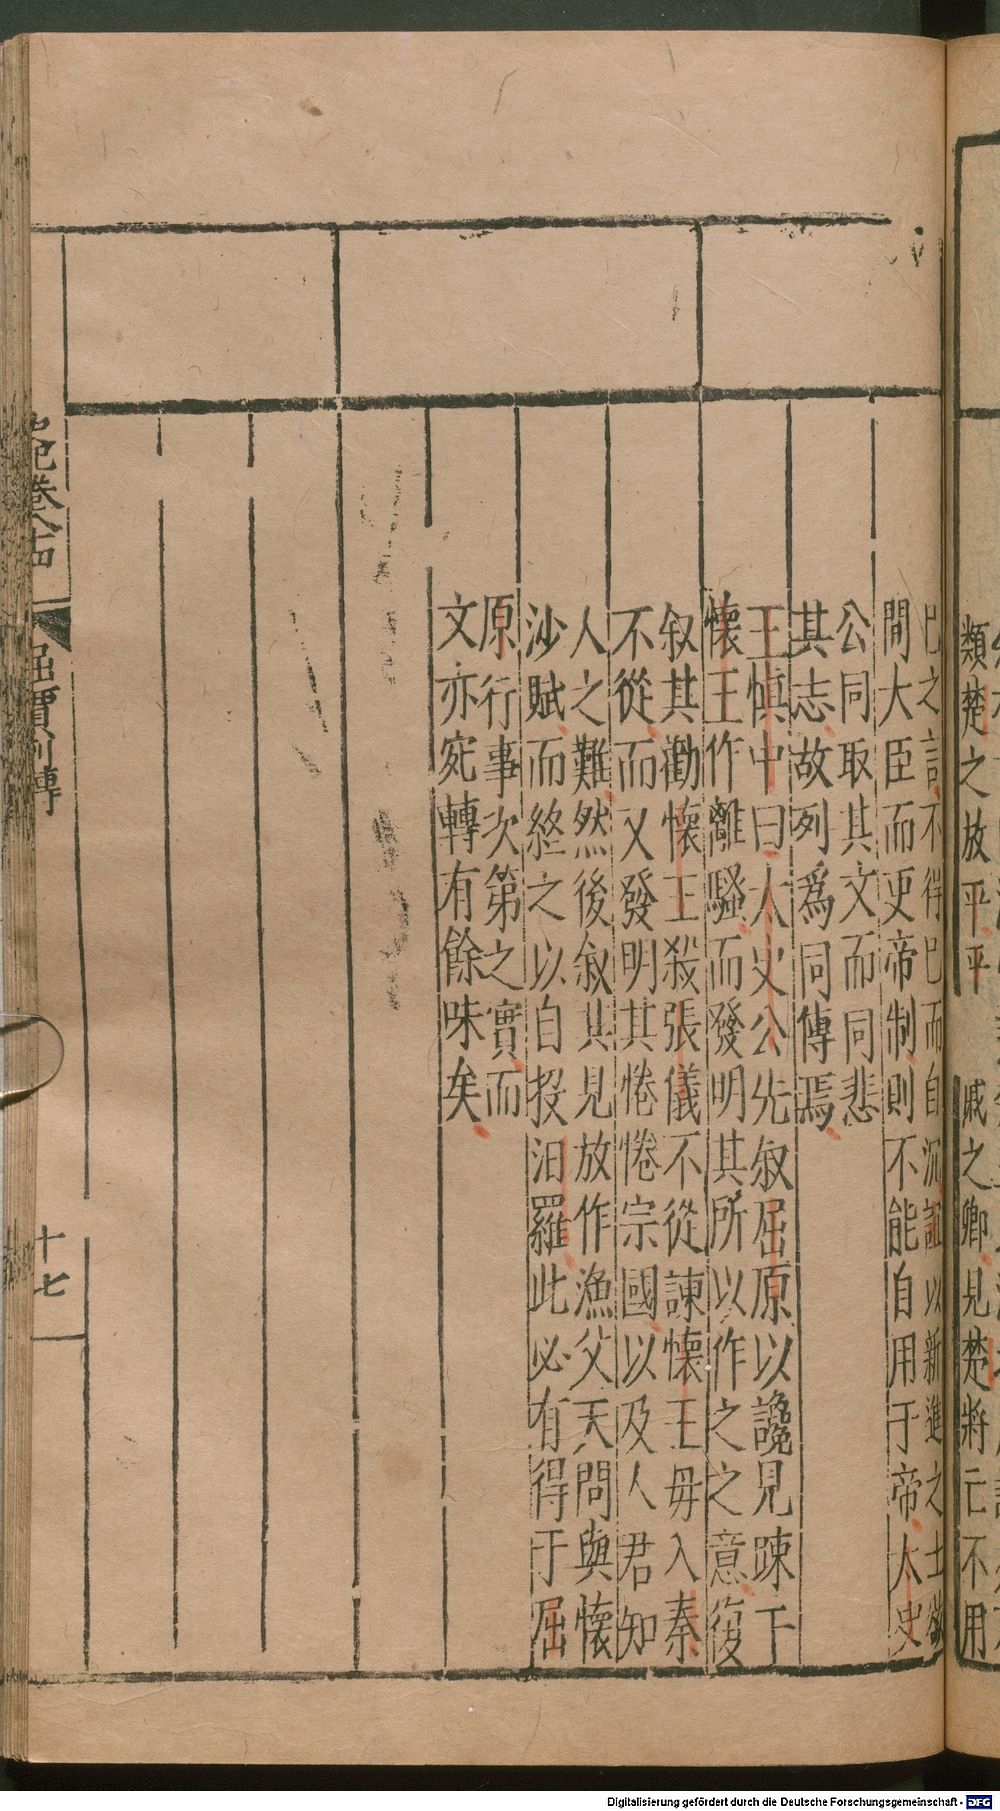 類楚之放平平 戚之卿見楚將亡不用
巳之言不得巳而自沉誼以新進之士欲
間大臣而更帝制則不能自用于帝太史
公同取其文而同悲
其志故列爲同傳焉
王慎中曰太史公先叙屈原以讒見踈于
懷王作離騷而發明其所以作之之意復
叙其勸懷王殺張儀不從諫懷王毋入秦
不從而又發明其惓惓宗國以及人君知
人之難然後叙其見放作漁父天問與懷
沙賦而終之以自投汨羅此必有得于屈
原行事次第之實而
文亦宛轉有餘味矣
屈賈列傳
十七
Digitalisierung gefördert durch die Deutsche Forschungsgemeinschaft - DFG